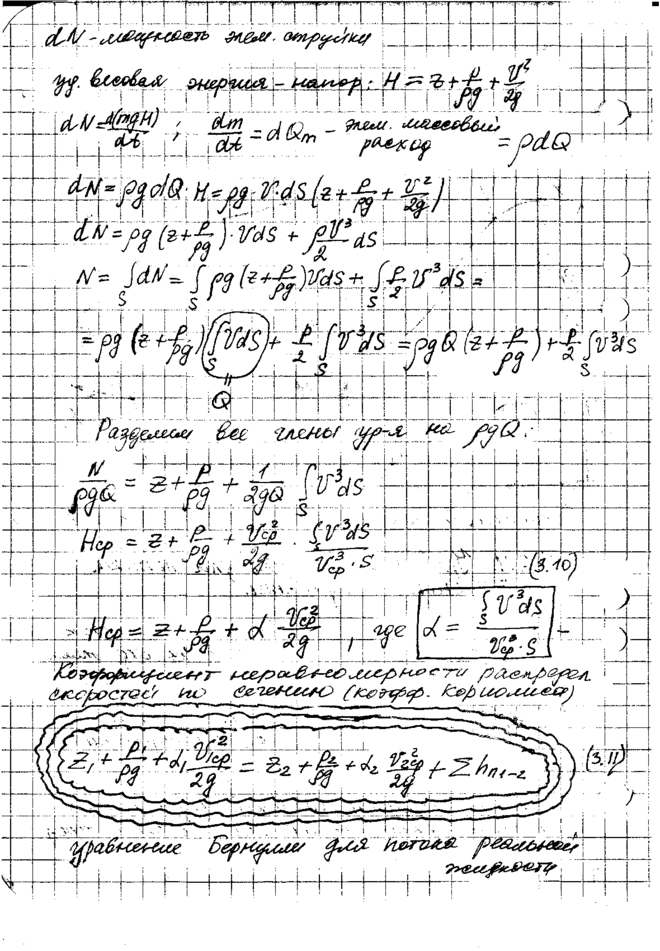 dN - мощность элем. струйки
уд. весовая энергия - напор: H = z + p/ρg + V²/2g
dN = d(mgH)/dt ; dm/dt = dQm - элем. массовый расход = ρdQ
dN = ρg dQ · H = ρg · V · dS (z + p/ρg + V²/2g)
dN = ρg (z + p/ρg) · VdS + ρV³/2 dS
N = ∫_S dN = ∫_S ρg (z + p/ρg) VdS + ∫_S ρ/2 V³dS =
= ρg (z + p/ρg) ∫_S VdS + ρ/2 ∫_S V³dS = ρgQ (z + p/ρg) + ρ/2 ∫_S V³dS
=
Q
Разделим все члены ур-я на ρgQ:
N/ρgQ = z + p/ρg + 1/2gQ ∫_S V³dS
Hср = z + p/ρg + Vср²/2g · ∫_S V³dS / Vср³ · S
(3.10)
Hср = z + p/ρg + α Vср²/2g , где α = ∫_S V³dS / Vср³ · S -
Коэффициент неравномерности распредел
скоростей по сечению (коэфф. Кориолиса)
z₁ + p₁/ρg + α₁ V₁ср²/2g = z₂ + p₂/ρg + α₂ V₂ср²/2g + Σhп₁₋₂ (3.11)
уравнение Бернулли для потока реальной
жидкости